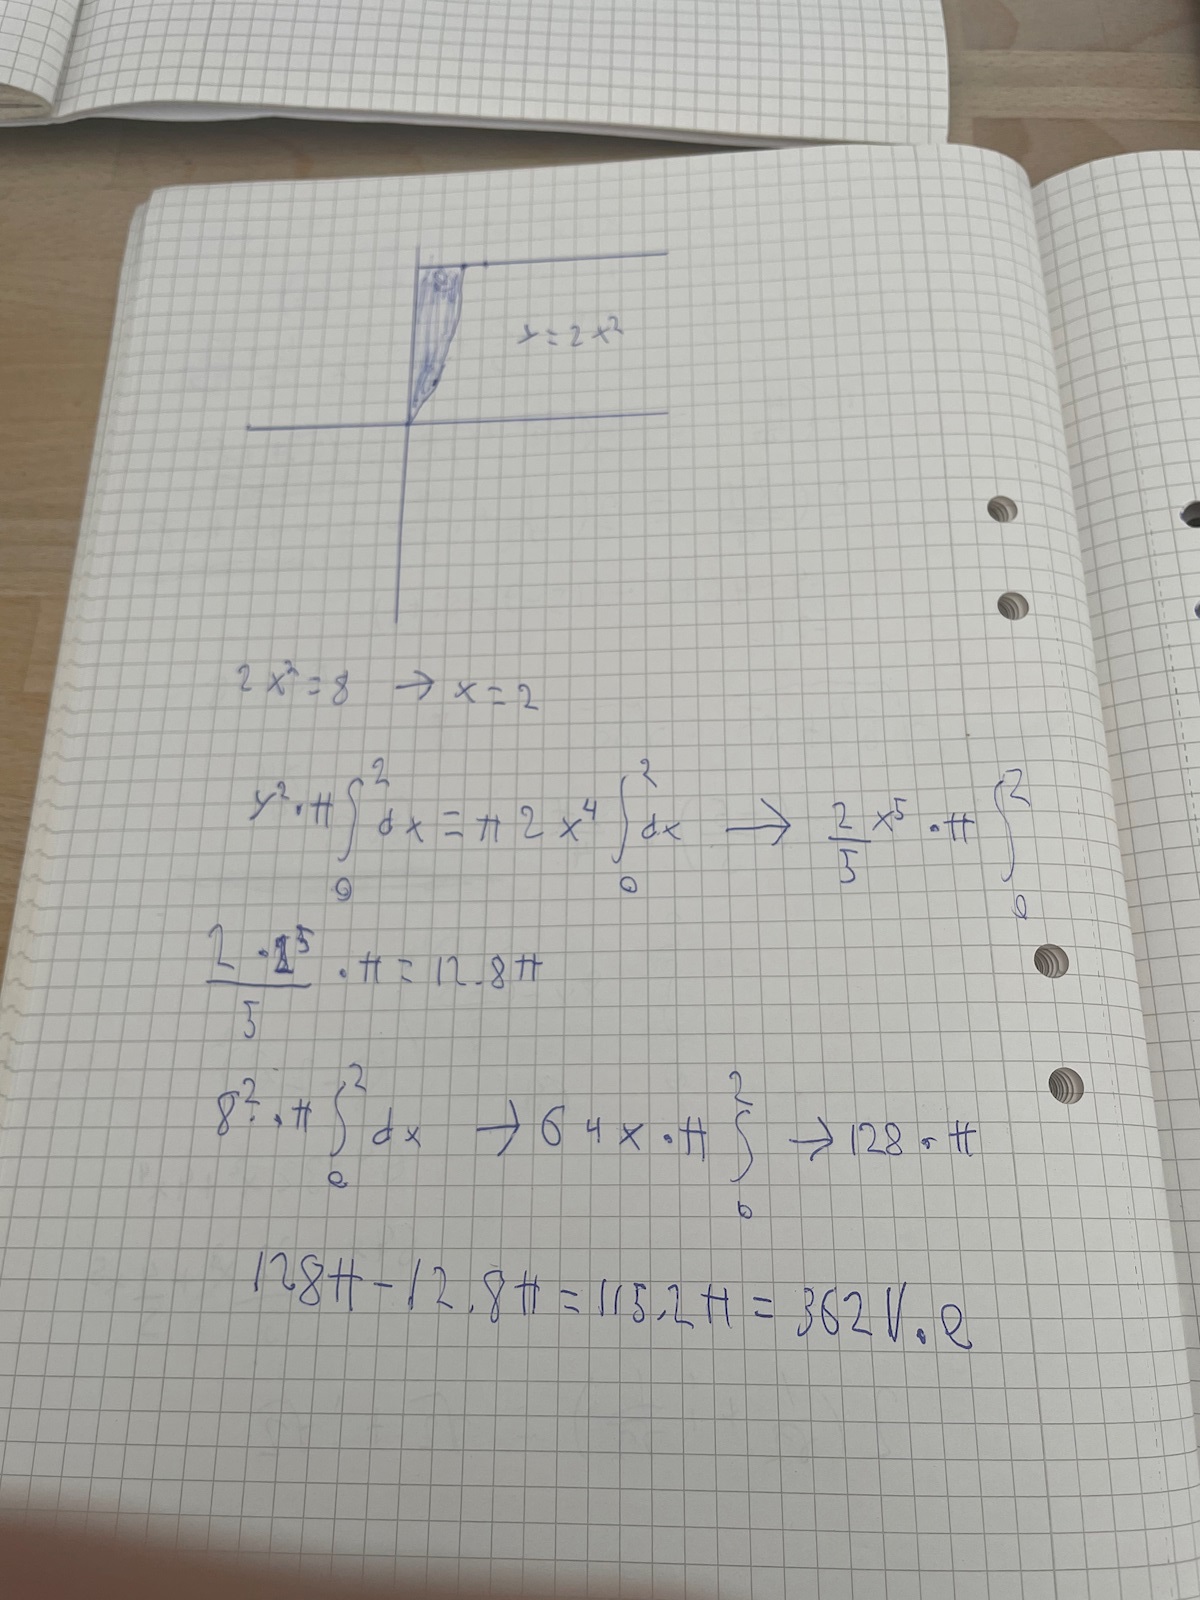 y = 2x²
2x² = 8 → x = 2
y² · π ∫₀² dx = π 2x⁴ ∫₀² dx → 2/5 x⁵ · π ∫₀²
2 · 2⁵/5 · π = 12.8π
8² · π ∫₀² dx → 64x · π ∫₀² → 128 · π
128π - 12.8π = 115.2π = 362 V.e